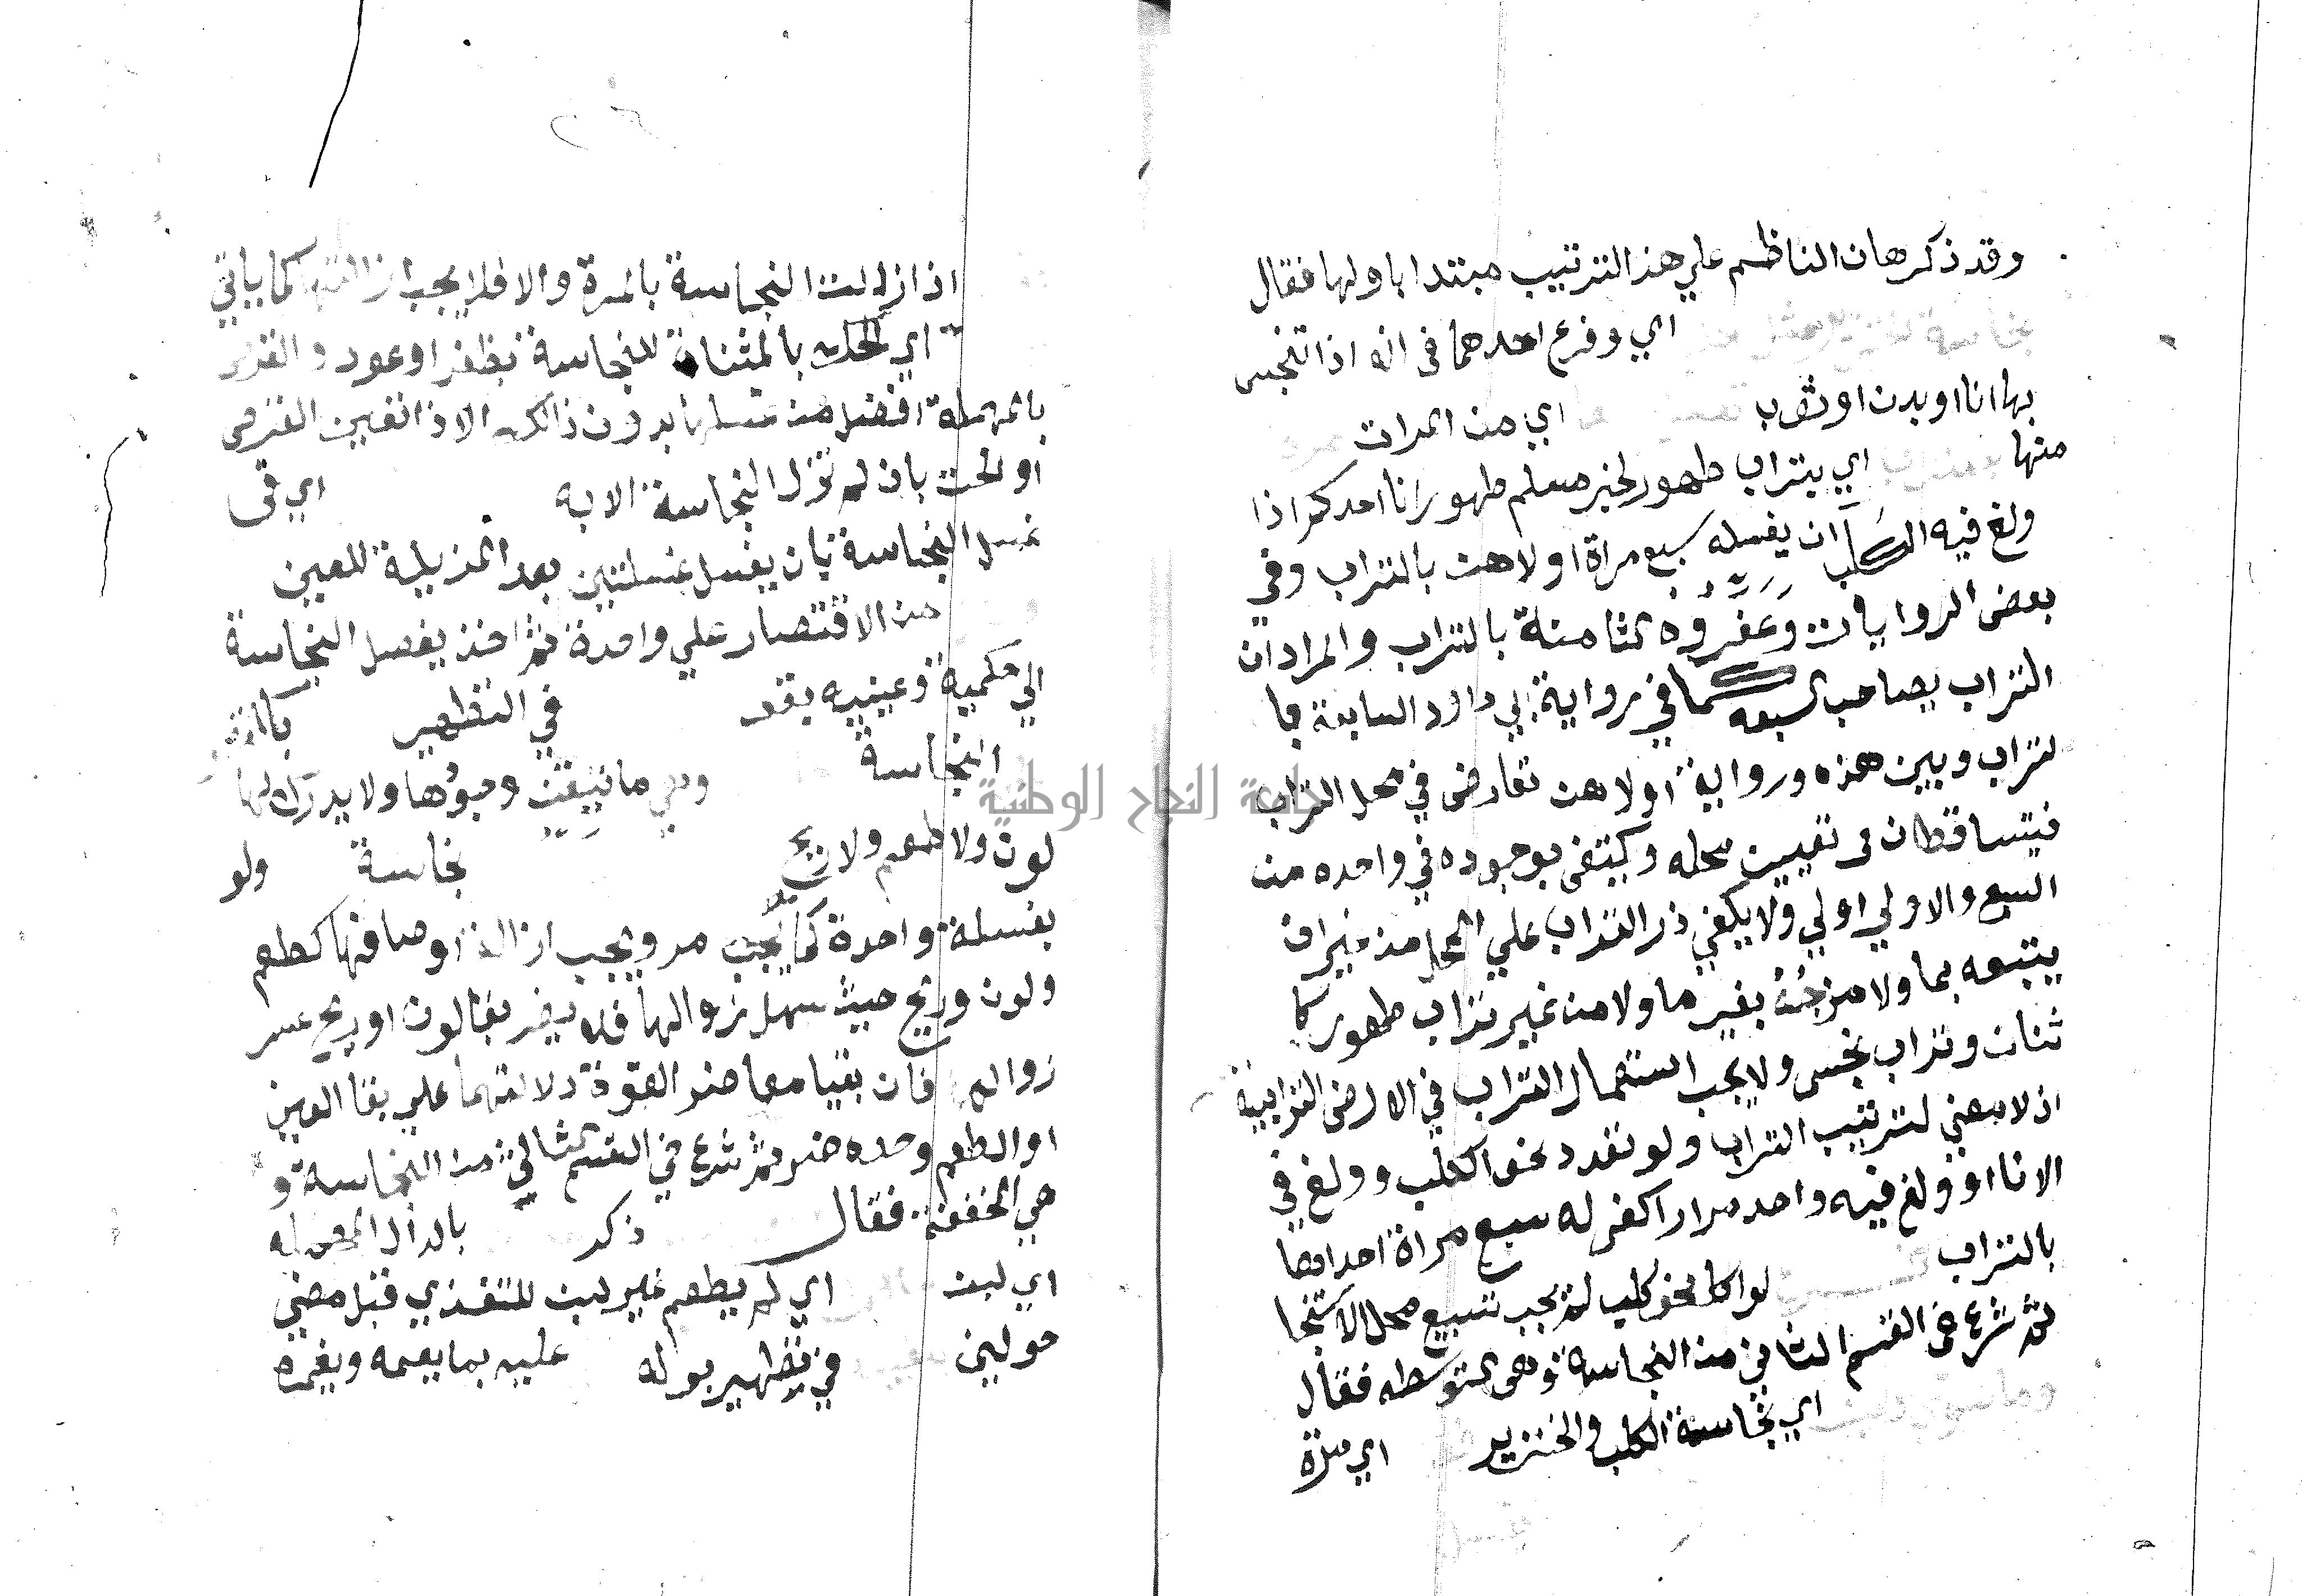 وقد ذكرها الناظم علي هذا الترتيب مبتدا باولها فقال
اي وفرع احدهما في انه اذا تنجس
بها انا او بدن او ثوب اي من المرات
منها اي بتراب طهور لخبر مسلم طهور انا احدكم اذا
ولغ فيه الكلب ان يغسله سبع مراة اولاهن بالتراب وفي
بعض الروايات وعفروه الثامنة بالتراب والمراد ان
التراب يصاحب السبعه كما في رواية ابي داود السابعة با
لتراب وبين هذه ورواية اولاهن تعارض في محل التراب
فيتساقطان في تعيين محله ويكتفى بوجوده في واحده من
السبع والاولي اولي ولا يكفي ذر التراب علي المحل من غير ان
يتبعه بما ولا مزجه بغير ما ولا من غير تراب طهور كا
شنان وتراب نجس ولا يجب استعمال التراب في الارض الترابية
اذ لا معني لترتيب التراب ولو تعدد نحو الكلب وولغ في
الانا او ولغ فيه واحد مرارا كفى له سبع مراة احداهما
بالتراب لو اكل نحو كلب لم يجب تسبيع محل الاستنجا
ثم شرع في القسم الثاني من النجاسة وهي المتوسطه فقال
اي نجاسة الكلب والخنزير اي مرة
اذا زالت النجاسة بالمرة والا فلا يجب ازالتها كما ياتي
اي الحك بالمثناة للنجاسة بظفر او عود والقرص
بالمهملة افضل من غسلها بدون ذالك الا اذا تعين القرص
او الحت بان لم تزل النجاسة الا به اي في
غسل النجاسة بان يغسل غسلتين بعد المزيلة للعين
من الاقتصار علي واحدة ثم اخذ يفصل النجاسة
الي حكمية وعينيه بقوله في التطهير
النجاسة وهي ما تيقنت وجودها ولا يدرك لها
لون ولا طعم ولا ريح نجاسة ولو
بغسلة واحدة كما مر ويجب ازالة اوصافها كطعم
ولون وريح حيث سهل زوالها فلا يضر بقا لون او ريح عسر
زواله فان بقيا معا ضر لقوة دلالتهما علي بقا العين
او الطعم وحده ضر ثم شرع في القسم الثالث من النجاسة و
هي المخففة فقال ذكر بالدال المهمله
اي لبن اي لم يطعم غير لبن للتغذي قبل مضي
حولين في تطهير بوله عليه بما يعمه ويغمره
جامعة النجاح الوطنية